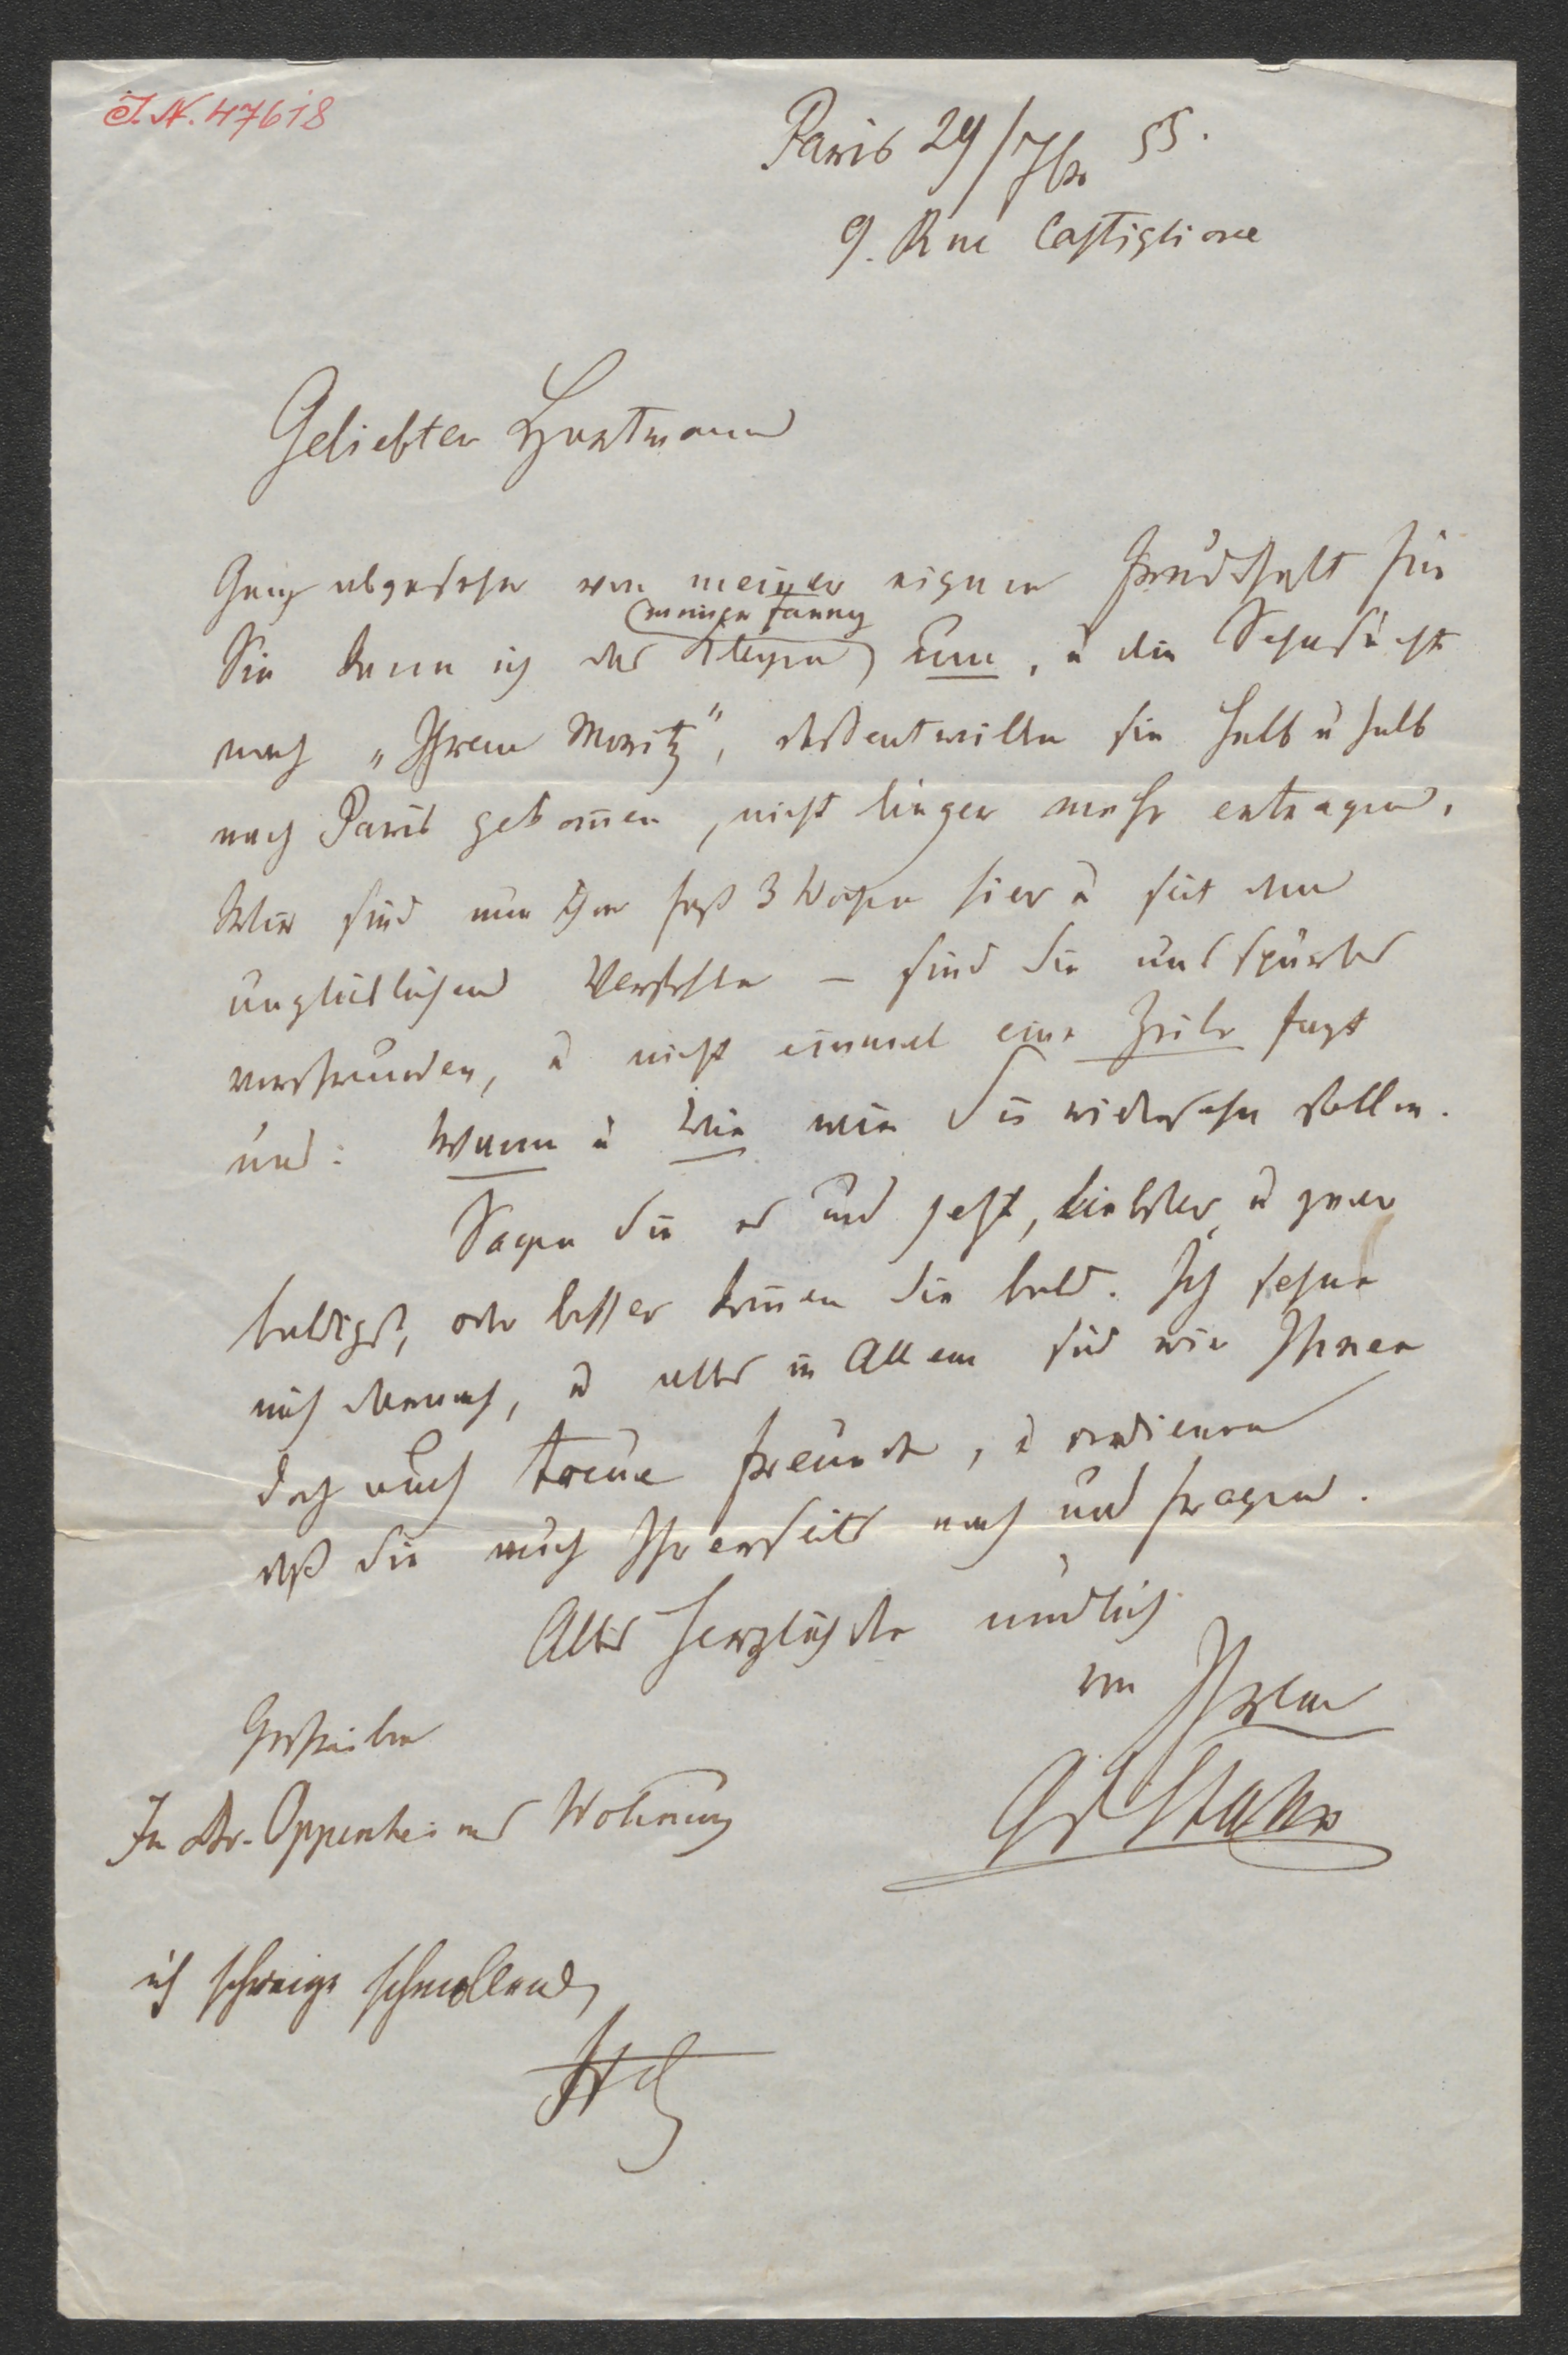 I.N. 47618
Paris 29/7br 55.
9. Rue Castiglione
Geliebter Hartmann
Ganz abgesehen von meiner eignen Freundschaft für
(meiner Fanny
Sie kann ich das Klagen) u die Sehnsucht
nach „Ihrem Moritz", deßentwillen sie halb u halb
nach Paris gekom̄en, nicht länger mehr ertragen.
Wir sind nun schon fast 3 Wochen hier u seit dem
unglücklichen Verfehlen – sind Sie uns spurlos
verschwunden, u nicht einmal eine Zeile sagt
uns: Wann u Wie wir Sie wiedersehn sollen.
Sagen Sie es uns jetzt, Liebster, u zwar
baldigst, oder besser kom̄en Sie bald. Ich sehne
mich darnach, u alles in Allem sind wir Ihnen
doch auch treue Freunde, u verdienen
daß Sie auch Ihrerseits nach uns fragen.
Alles Herzlichste mündlich
von Ihrem
Ad Stahr
Geschrieben
In Dr. Oppenheims Wohnung
ich schweige schmollend